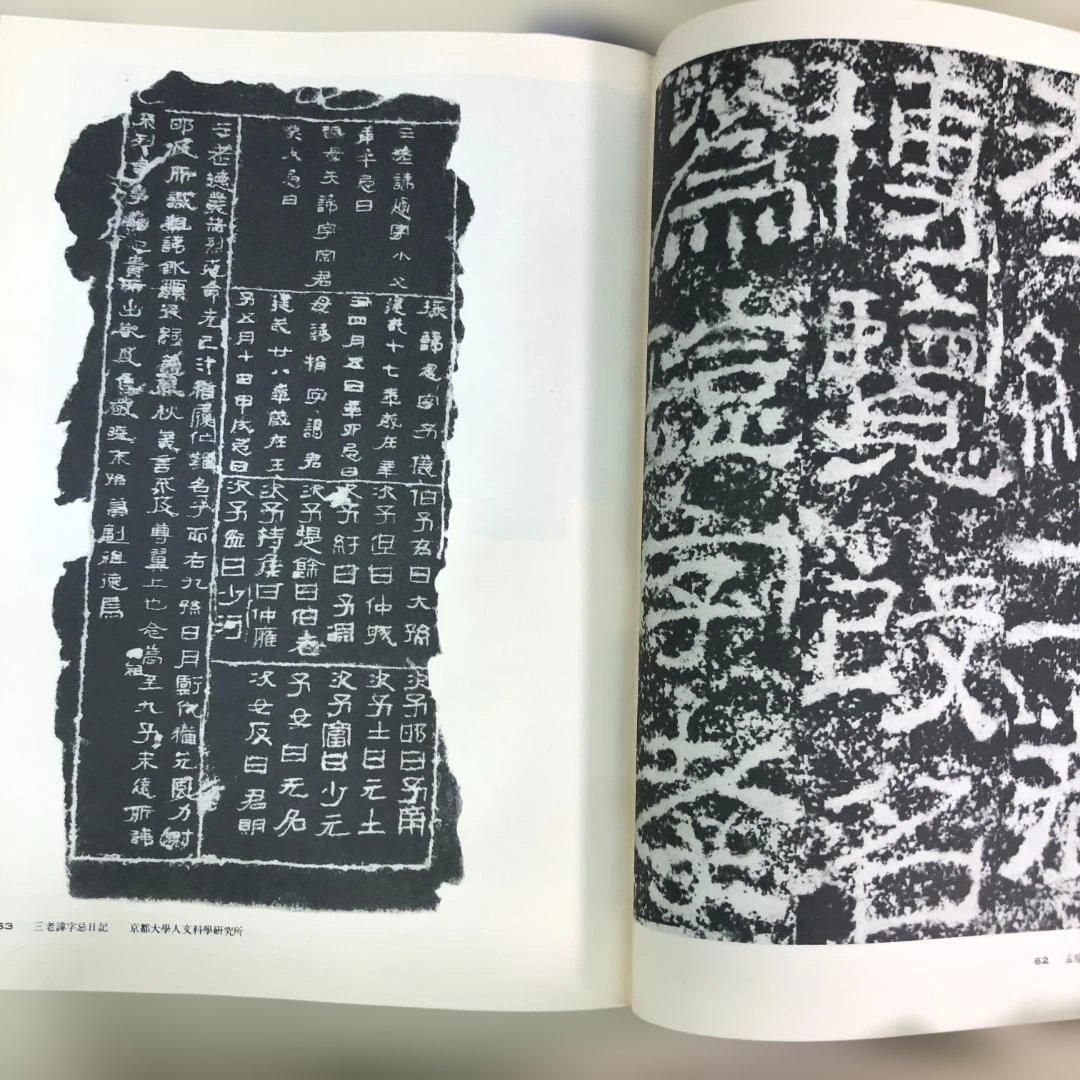 經二卷
博覽改名
為琁字孝
62
三老諱通字小父
庚午忌日
祖母失諱字宗君
癸未忌日
掾諱忽字子儀
建武十七年歲在辛
丑四月五日辛卯忌日
母諱捐字謁君
建武廿八年歲在壬
子五月十日甲戌忌日
伯子玄曰大孫
次子但曰仲城
次子紆曰子淵
次子提餘曰伯老
次子持侯曰仲雍
次子盆曰少河
次子邯曰子南
次子士曰元士
次子富曰少元
子女曰无名
次女反曰君明
三老德業赫烈克命先己汁稽履仁難名兮而右九孫日月虧代猶元風力射
邯及所識祖諱欽顯後嗣蓋春秋義言不及尊翼上也念高祖至九子未遠所諱
不列言事觸忌貴所出嚴及焦敬曉末孫冀副祖德焉
63 三老諱字忌日記 京都大學人文科學研究所